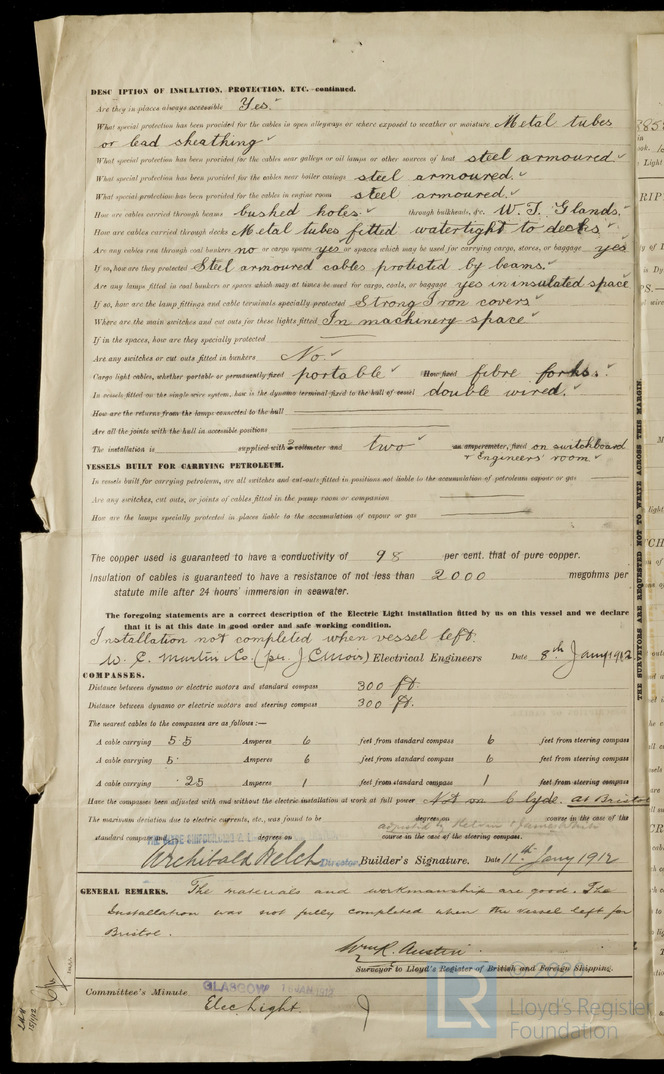 DESCRIPTION OF INSULATION, PROTECTION, ETC.—continued.
Are they in places always accessible Yes.
What special protection has been provided for the cables in open alleyways or where exposed to weather or moisture Metal tubes
or lead sheathing
What special protection has been provided for the cables near galleys or oil lamps or other sources of heat steel armoured
What special protection has been provided for the cables near boiler casings steel armoured.
What special protection has been provided for the cables in engine room steel armoured.
How are cables carried through beams bushed holes. through bulkheads, &c. W. T. Glands.
How are cables carried through decks Metal tubes fitted watertight to decks
Are any cables run through coal bunkers no or cargo spaces yes or spaces which may be used for carrying cargo, stores, or baggage yes
If so, how are they protected Steel armoured cables protected by beams.
Are any lamps fitted in coal bunkers or spaces which may at times be used for cargo, coals, or baggage yes in insulated space
If so, how are the lamp fittings and cable terminals specially protected Strong Iron covers
Where are the main switches and cut outs for these lights fitted In machinery space
If in the spaces, how are they specially protected
Are any switches or cut outs fitted in bunkers No.
Cargo light cables, whether portable or permanently fixed portable How fixed fibre forks.
In vessels fitted on the single wire system, how is the dynamo terminal fixed to the hull of vessel double wired.
How are the returns from the lamps connected to the hull
Are all the joints with the hull in accessible positions
The installation is supplied with 2 voltmeter and two an amperemeter, fixed on switchboard
+ Engineers' room
VESSELS BUILT FOR CARRYING PETROLEUM.
In vessels built for carrying petroleum, are all switches and cut-outs fitted in positions not liable to the accumulation of petroleum vapour or gas
Are any switches, cut outs, or joints of cables fitted in the pump room or companion
How are the lamps specially protected in places liable to the accumulation of vapour or gas
The copper used is guaranteed to have a conductivity of 98 per cent. that of pure copper.
Insulation of cables is guaranteed to have a resistance of not less than 2000 megohms per
statute mile after 24 hours' immersion in seawater.
The foregoing statements are a correct description of the Electric Light installation fitted by us on this vessel and we declare
that it is at this date in good order and safe working condition.
Installation not completed when vessel left.
W. C. Martin Co. (pr. J C Moir) Electrical Engineers Date 8th Jany 1912
COMPASSES.
Distance between dynamo or electric motors and standard compass 300 ft.
Distance between dynamo or electric motors and steering compass 300 ft.
The nearest cables to the compasses are as follows:—
A cable carrying 55 Amperes 6 feet from standard compass 6 feet from steering compass
A cable carrying 5. Amperes 6 feet from standard compass 6 feet from steering compass
A cable carrying .25 Amperes 1 feet from standard compass 1 feet from steering compass
Have the compasses been adjusted with and without the electric installation at work at full power Not on Clyde. at Bristol
The maximum deviation due to electric currents, etc., was found to be degrees on course in the case of the
adjusted by Kelvin & James White
standard compass and degrees on course in the case of the steering compass.
Archibald Welch Director Builder's Signature. Date 11th Jany 1912
GENERAL REMARKS. The materials and workmanship are good. The
Installation was not fully completed when the vessel left for
Bristol.
Wm R. Austin.
Surveyor to Lloyd's Register of British and Foreign Shipping.
Committee's Minute GLASGOW 16 JAN 1912
Elec Light.
THE SURVEYORS ARE REQUESTED NOT TO WRITE ACROSS THIS MARGIN.
© 2020
LR
Lloyd's Register
Foundation